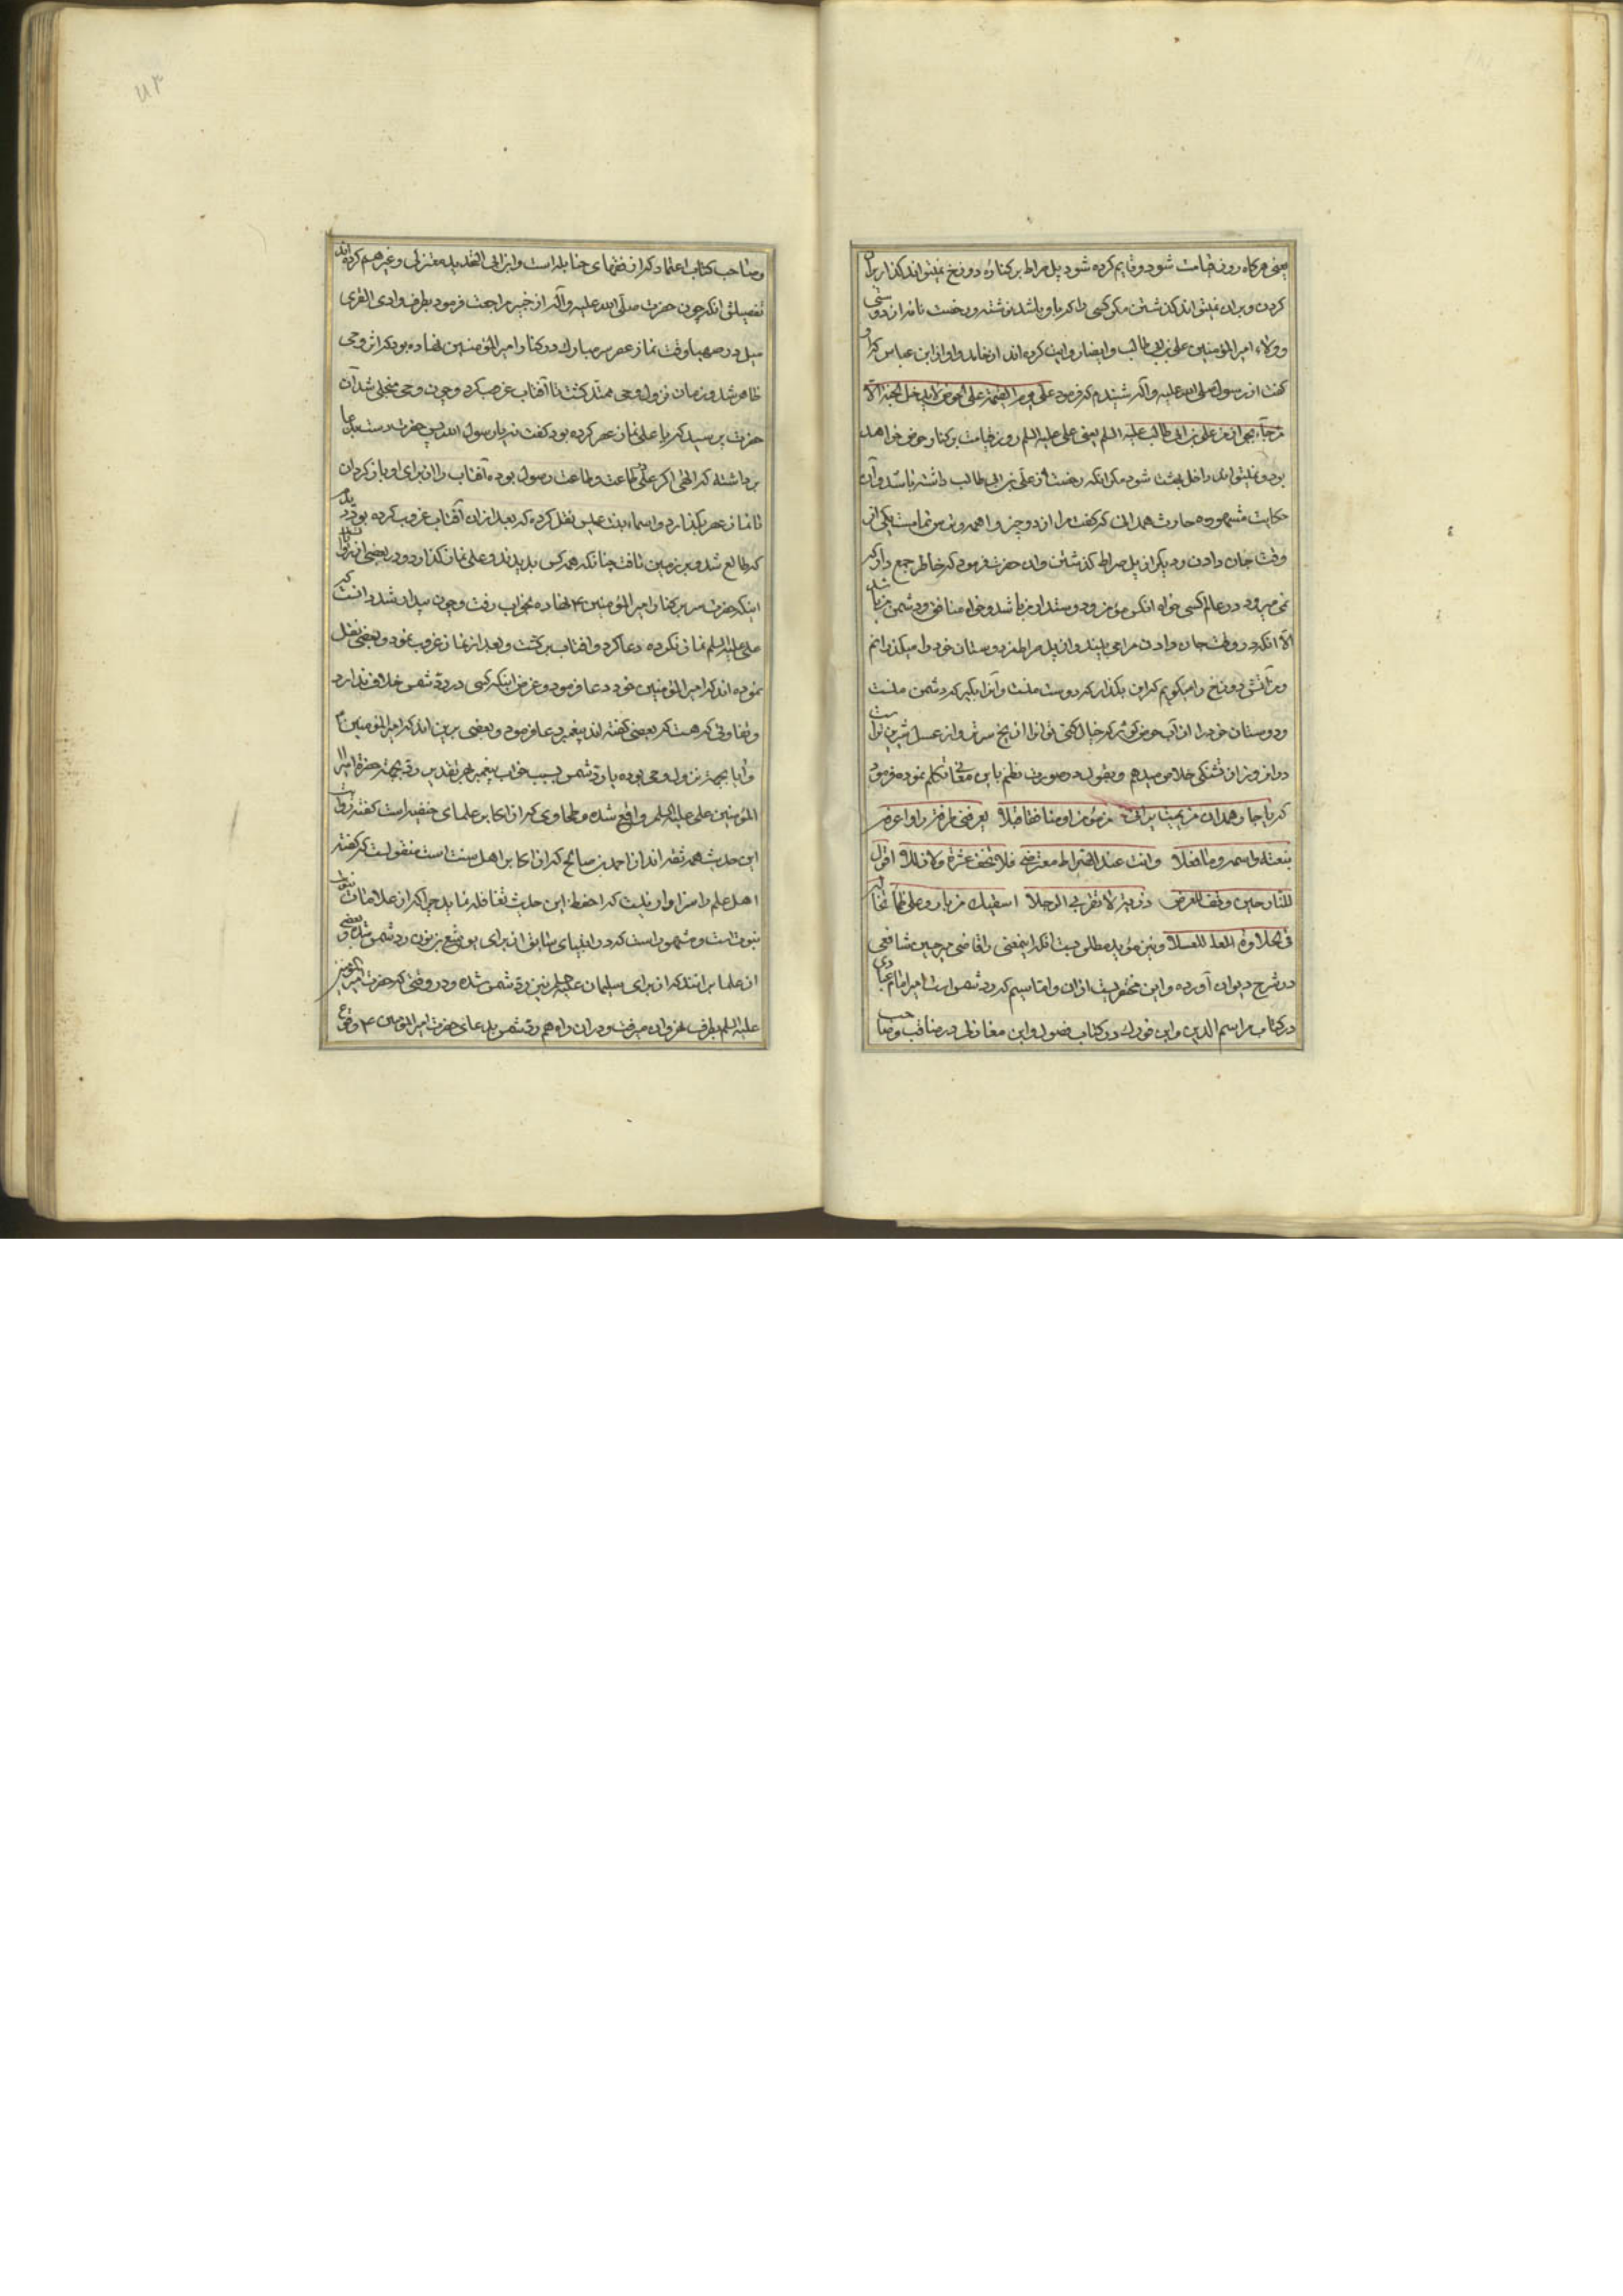 یعنی هرکاه روز قیامت شود و قایم کرده شود پل صراط بر کناره دوزخ نمیتواند کذار بران
کردن و بران نمیتواند کذشتن مکر کسی را که با او باشد نوشته و رخصت نامه از دوستی
و ولاء امیر المؤمنین علی بن ابی طالب و ایضا روایت کرده اند از ابن عباس که او
کفت از رسول صلی الله علیه وآله شنیدم که فرمود علی یوم القیمة علی الحوض لا یدخل الجنة الا
من جاء بجواز من علی بن ابی طالب علیه السلم یعنی علی علیه السلم روز قیامت بر کنار حوض خواهد
بود و نمیتواند داخل بهشت شود مکر انکه رخصت از علی بن ابی طالب داشته باشد و آن
حکایت مشهوره حارث همدانی که کفت مرا از دو چیز واهمه و ترس تمامیست یکی از
وقت جان دادن و دیکر از پل صراط کذشتن و ان حضرت فرمود که خاطر جمع دار که
نمی میرود در عالم کسی خواه انکس مؤمن و دوستدار من باشد و خواه منافق و دشمن من باشد
الا انکه در وقت جان دادن مرا می بیند و از پل صراط من دوستان خود را میکذرانم
و من آتش دوزخ را میکویم که این بکذار که دوست منست و آنرا بکیر که دشمن منست
و دوستان خود را از آب حوض کوثر که خیال کنی تو انرا از یخ سردتر و از عسل شیرین تراست
در آن روز از تشنکی خلاص میدهم و بقول در صورت نظم باین معانی تکلم نموده فرمود
که یا حار همدان من یمت یرانی من مؤمن او منافق قبلا یعرفنی طرفه و اعرفه
بنعته واسمه وما فعلا وانت عند الصراط معترضی فلا تخف عثرة ولا زللا اقول
للنار حین توقف للعرض ذریه لا تقربی الرجلا اسقیک من بارد علی ظمأ تخاله
فی الحلاوة العسلا و نیز مؤید مطلوبست انکه اینمعنی را قاضی میر حسین شافعی
در شرح دیوان آورده و این مختصریست از ان و اما سیم که رد شمس است امیر امام عبادی
در کتاب مراسم الدین و ابن فورک در کتاب فصول و ابن مغازلی در مناقب و صاحب
و صاحب کتاب اعتماد که از فضلای حنابله است و ابن ابی الحدید معتزلی و غیرهم کرده اند
تفصیلش انکه چون حضرت صلی الله علیه وآله از خیبر مراجعت فرمود بطرف وادی القری
میل در صهبا وقت نماز عصر سر مبارک در کنار امیر المؤمنین نهاده بود که اثر وحی
ظاهر شد و زمان نزول وحی ممتد کشت تا آفتاب غروب کرد و چون وحی منجلی شد آن
حضرت پرسید که یا علی نماز عصر کرده بود کفت نه یا رسول الله پس حضرت دست بدعا
برداشته که الهی اکر علی در طاعت تو و طاعت رسول بوده آفتاب را از برای او باز کردان
تا نماز عصر بکذارد و اسماء بنت عمیس نقل کرده که بعد از ان آفتاب غروب کرده بود دیدم
که طالع شد و بر زمین تافت چنانکه همه کس بدیدند و علی نماز کذارد و در بعضی از روایات
اینکه حضرت سر بر کنار امیر المؤمنین ع نهاده بخواب رفت و چون بیدار شد دانست که
علی علیه السلم نماز نکرده دعا کرد و افتاب بر کشت و بعد از نماز غروب نمود و بعضی نقل
نموده اند که امیر المؤمنین خود دعا فرمود و غرض اینکه کسی در رد شمس خلاف ندارد
و تفاوتی که هست که بعضی کفته اند پیغمبر دعا فرمود و بعضی برین اند که امیر المؤمنین
و آیا بجهة نزول وحی بوده یا رد شمس بسبب خواب پیغمبر بهر تقدیر رد بجهة حضرة امیر
المؤمنین علی علیه السلم واقع شده و طحاوی که از اکابر علمای حنفیه است کفته روات
این حدیث همه ثقه اند از احمد بن صالح که از اکابر اهل سنت است منقولست که کفته
اهل علم را سزاوار نیست که از حفظ این حدیث تغافل نماید چرا که از علامات نبوت
نبوتست و مشهور است که در انبیای سابق از برای یوشع بن نون رد شمس شده و بعضی
از علما برانند که از برای سلیمان علیه السلم نیز رد شمس شده و در وقتی که حضرت امیر المؤمنین
علیه السلم بطرف نهروان میرفت در ان راه هم رد شمس بدعای حضرت امیر المؤمنین ع وقوع